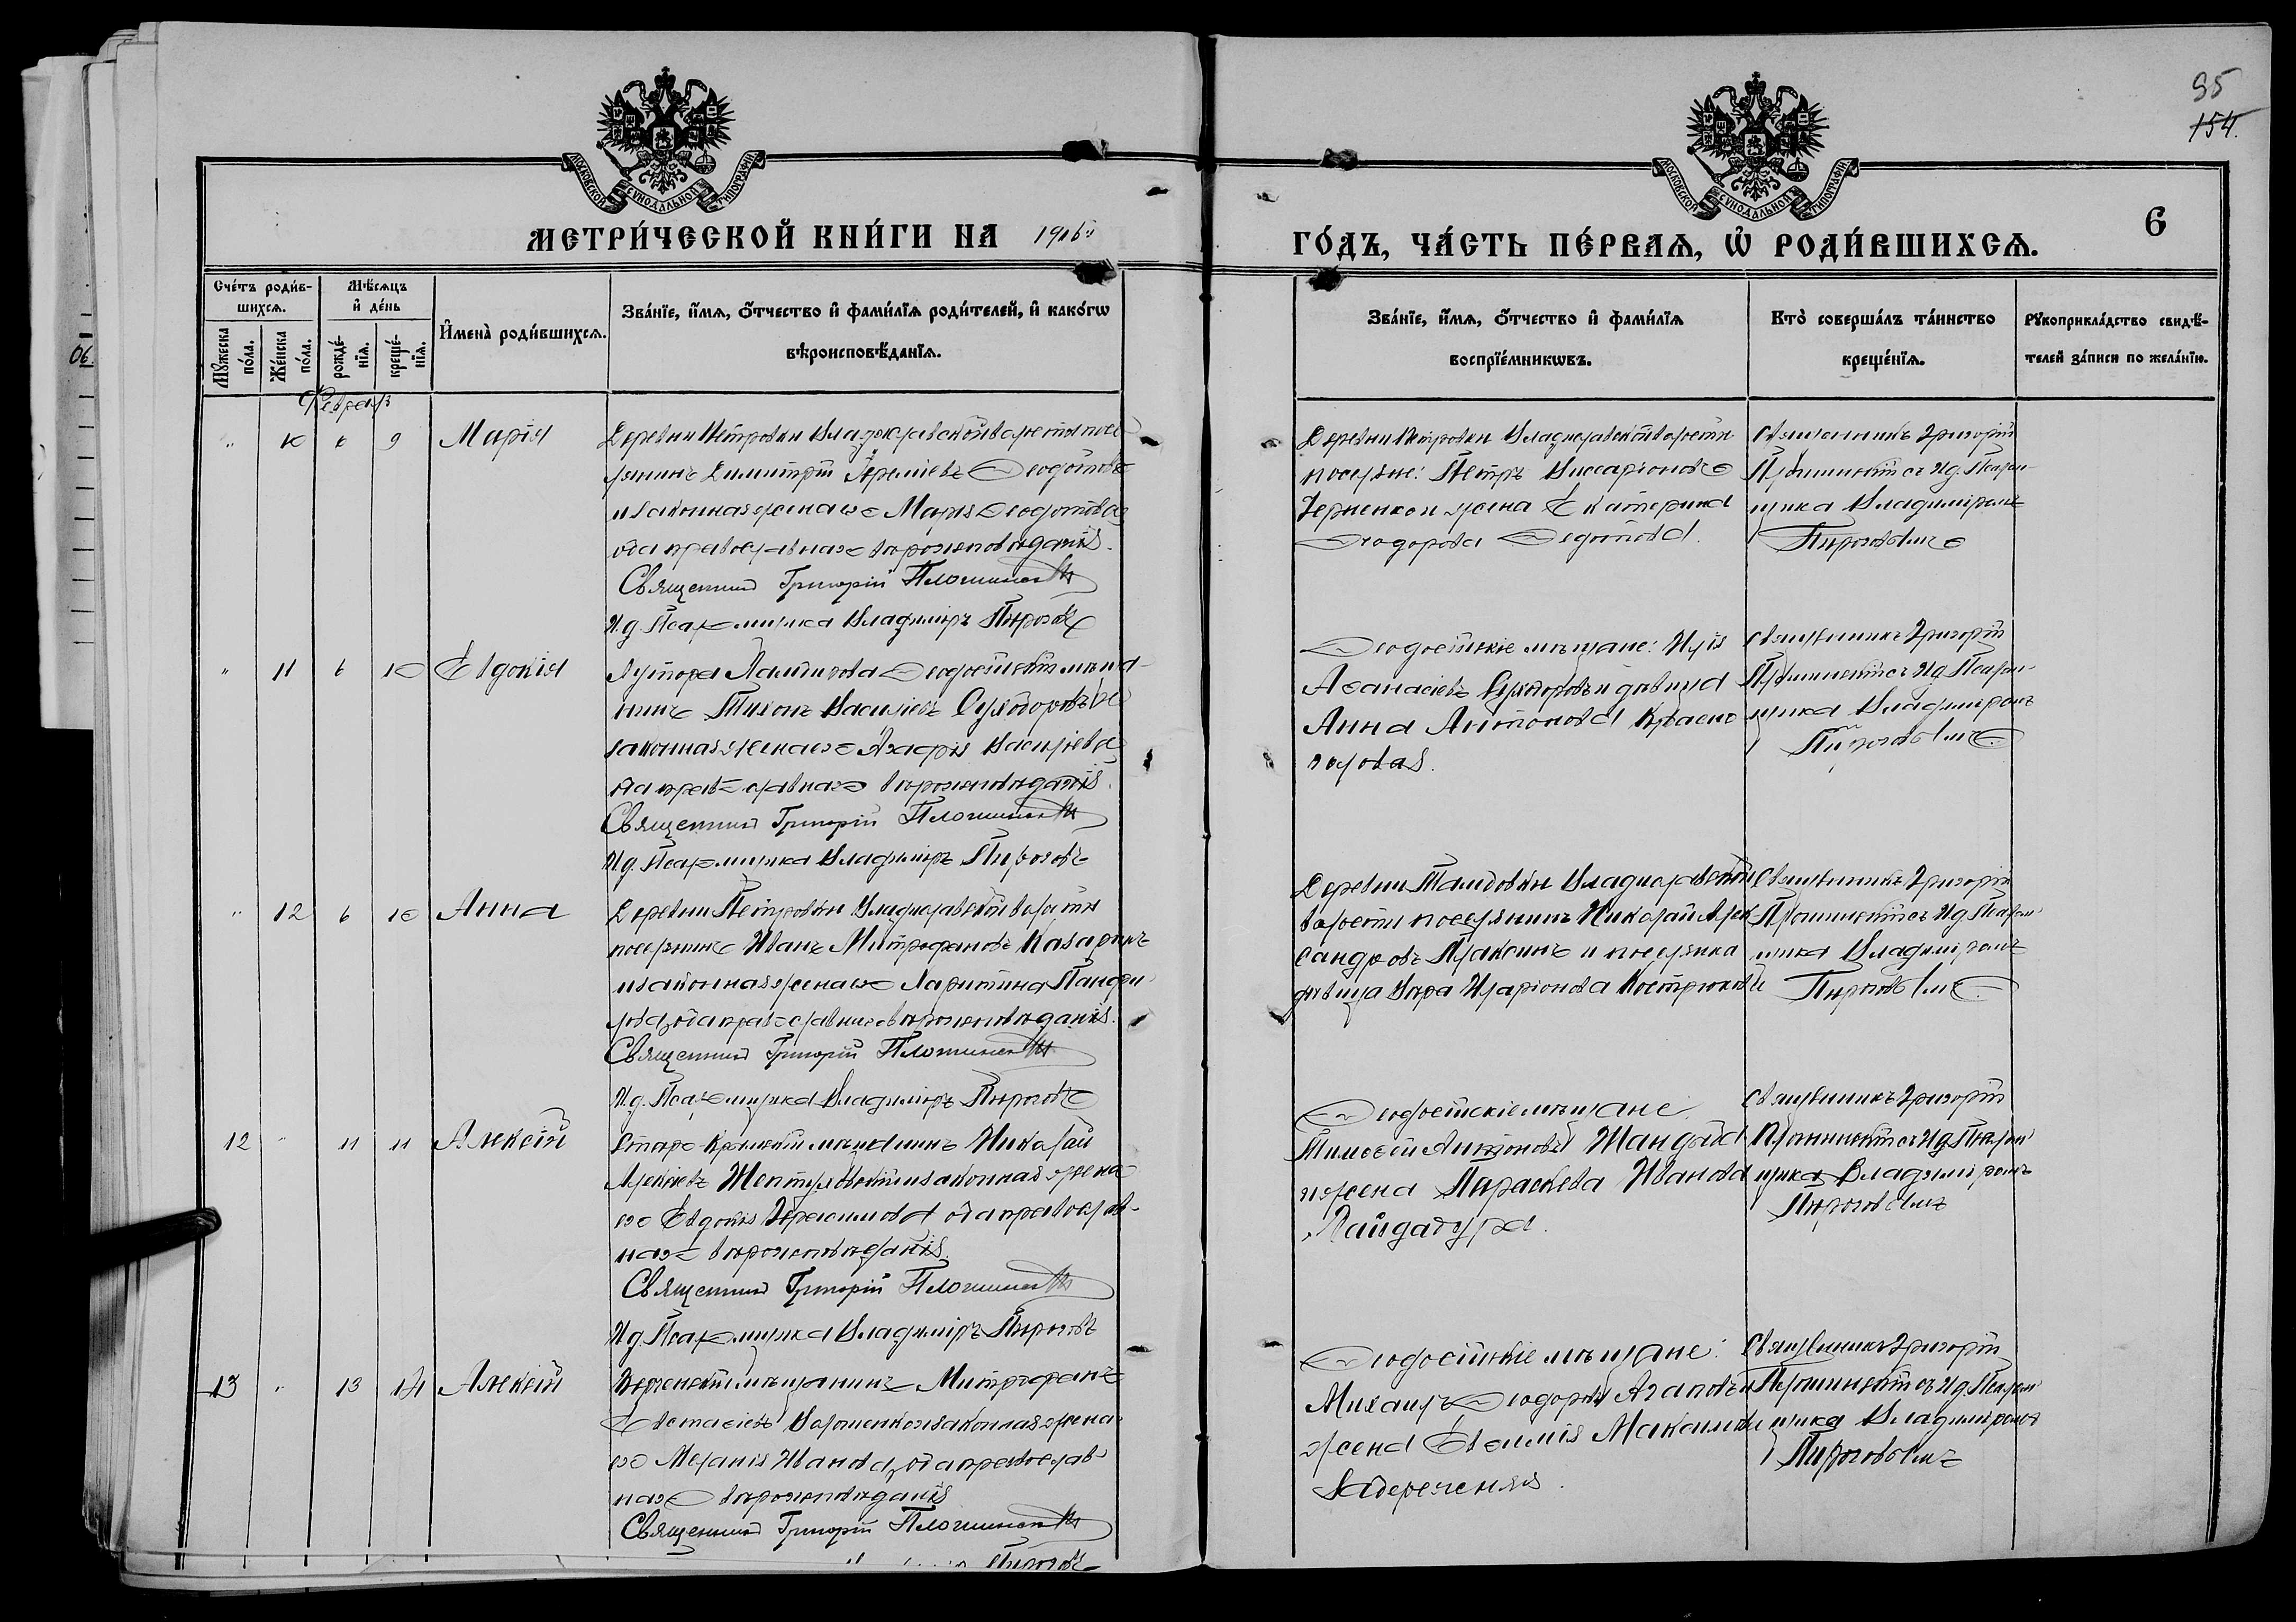 95
154.
МОСКОВСКОЙ СѴНОДАЛЬНОЙ ТИПОГРАФІИ
МОСКОВСКОЙ СѴНОДАЛЬНОЙ ТИПОГРАФІИ
МЕТРИ́ЧЕСКОЙ КНИ́ГИ НА 1916
ГО́ДЪ, ЧА́СТЬ ПЕ́РВАѦ, Ѡ РОДИ́ВШИХСѦ.
6
Сче́тъ роди́в-
шихсѧ.
Мꙋжеска по́ла.
Же́нска по́ла.
Мѣсѧцъ и де́нь
рожде́-
нїѧ.
креще́-
нїѧ.
Имена̀ роди́вшихсѧ.
Зва́нїе, и́мѧ, о́тчество и фами́лїѧ роди́телей, и како́гѡ
вѣроисповѣ́данїѧ.
Зва́нїе, и́мѧ, о́тчество и фами́лїѧ
воспрїе́мникѡвъ.
Кто̀ соверша́лъ та́инство
креще́нїѧ.
Рꙋкоприкла́дство свидѣ́-
телей за́писи по жела́нїю.
Февраль
" 10 6 9 Марія
Деревни Петровки Владиславской волости посе-
лянинъ Димитрій Федотовъ
и законная жена его Марія Феодотова
оба православнаго вѣроисповѣданія.
Священникъ Григорій Плошинскій
И.д. Псаломщика Владиміръ Пироговъ
Деревни Петровки Владиславской волости
поселяне: Петръ Виссаріоновъ
Черненко и жена Екатерина
Феодорова
Священникъ Григорій
Плошинскій съ И.д. Псалом-
щика Владиміромъ
Пироговымъ
" 11 6 10 Евдокія
Хутора Феодосійскій мѣща-
нинъ Тихонъ Василіевъ и
законная жена его Васильева
оба православнаго вѣроисповѣданія.
Священникъ Григорій Плошинскій
И.д. Псаломщика Владиміръ Пироговъ
Феодосійскіе мѣщане: Илія
Аѳанасіевъ и дѣвица
Анна Антонова Красно-
Священникъ Григорій
Плошинскій съ И.д. Псалом-
щика Владиміромъ
Пироговымъ
" 12 6 10 Анна
Деревни Петровки Владиславской волости
поселянинъ Иванъ Митрофановъ Казаринъ
и законная жена его Харитина Панфи-
лова, оба православнаго вѣроисповѣданія.
Священникъ Григорій Плошинскій
И.д. Псаломщика Владиміръ Пироговъ
Деревни Тамбовки Владиславской
волости поселянинъ Николай Алек-
сандровъ и поселянка
дѣвица Вѣра Иларіонова
Священникъ Григорій
Плошинскій съ И.д. Псалом-
щика Владиміромъ
Пироговымъ
12 " 11 11 Алексій
Старо-Крымскій мѣщанинъ Николай
Алексѣевъ и законная жена
его Евдокія Герасимова оба православ-
наго вѣроисповѣданія.
Священникъ Григорій Плошинскій
И.д. Псаломщика Владиміръ Пироговъ
Феодосійскіе мѣщане
Тимоѳей Антоновъ
и жена Параскева Иванова
Священникъ Григорій
Плошинскій съ И.д. Псалом-
щика Владиміромъ
Пироговымъ
13 " 13 14 Алексій
мѣщанинъ Митрофанъ
Евстаѳіевъ Волошенко и законная жена
его Меланія Иванова, оба православ-
наго вѣроисповѣданія
Священникъ Григорій Плошинскій
Пироговъ
Феодосійскіе мѣщане:
Михаилъ Феодоровъ Агаповъ и
жена Евѳимія Максимова
Священникъ Григорій
Плошинскій съ И.д. Псалом-
щика Владиміромъ
Пироговымъ